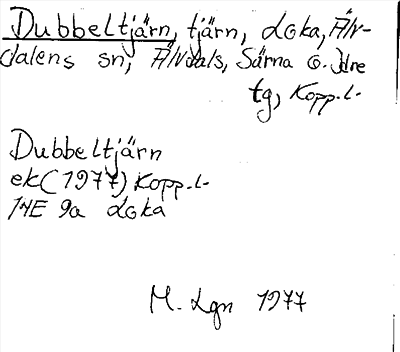 Dubbeltjärn, tjärn, Loka, Älv-
dalens sn, Älvdals, Särna o. Idre
tg, Kopp.l.
Dubbeltjärn
ek (1977) Kopp.l.
14E 9a Loka
M. Lgn 1977